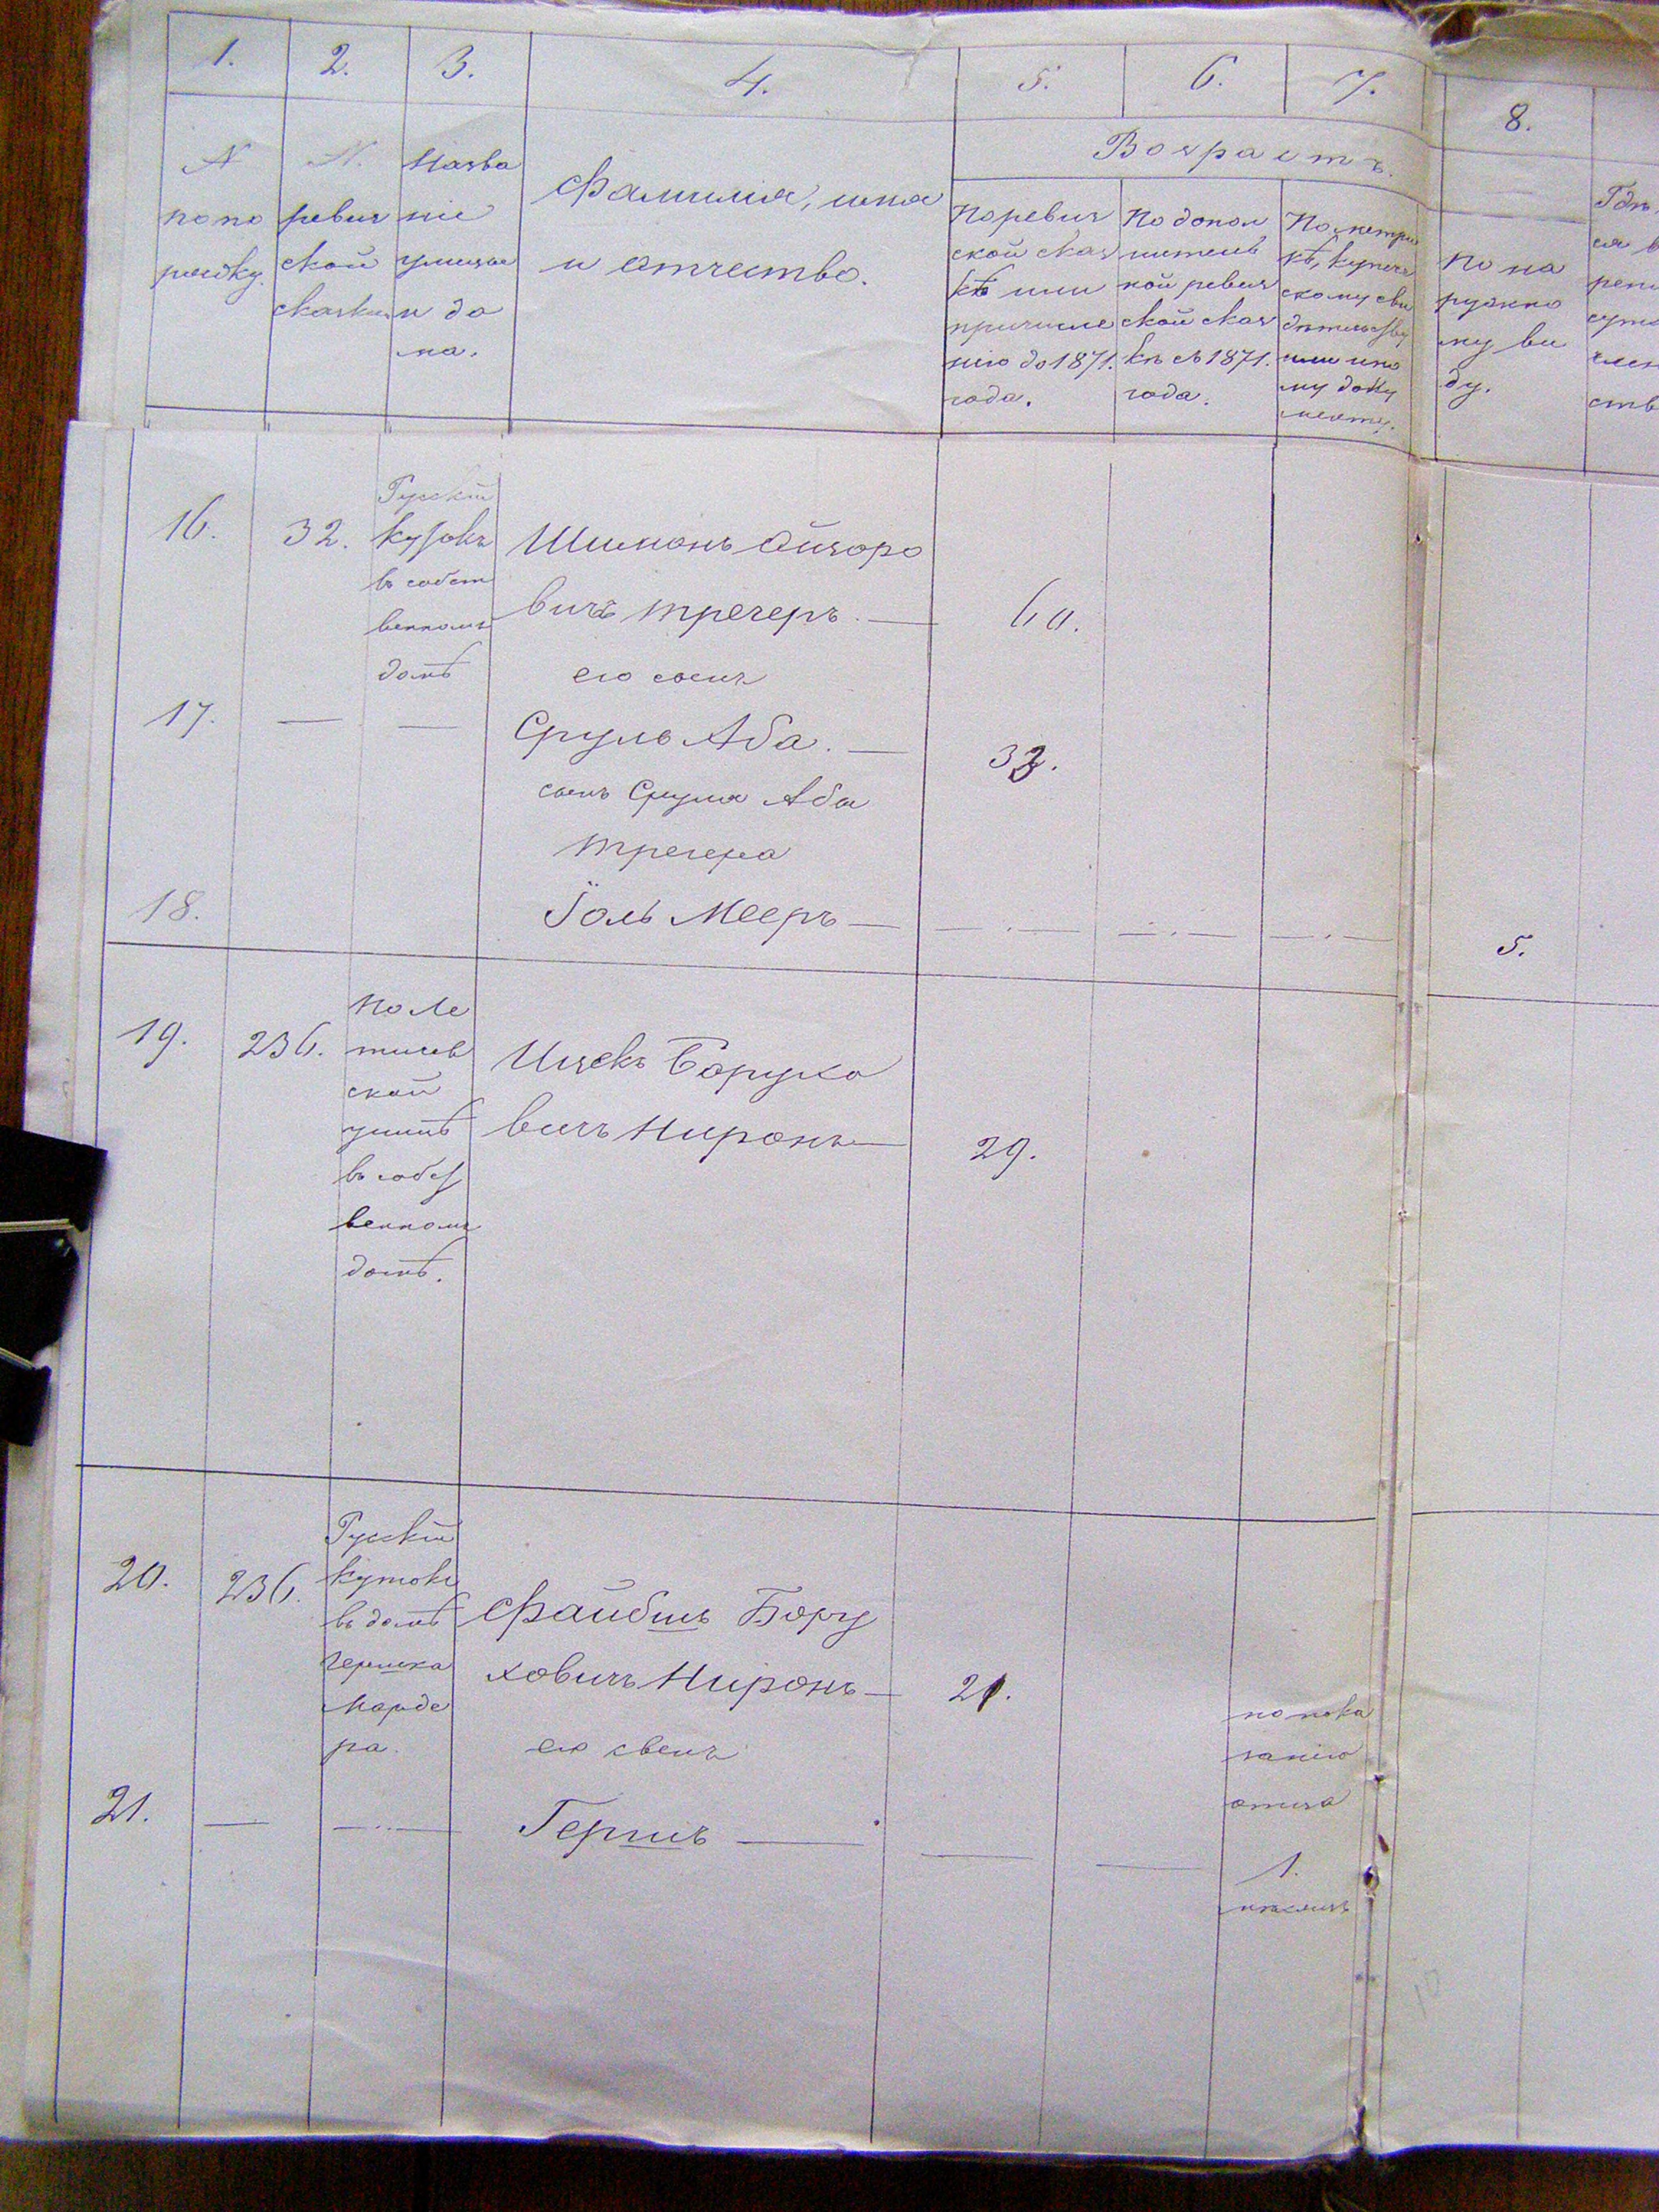 1. 2. 3. 4. 5. 6. 7. 8.
N
по по
рядку.
N.
ревиз
ской
сказки
Назва
ніе
улицы
и до
ма.
Фамилія, имя
и отчество.
Возрастъ.
По ревиз
ской сказ
кѣ или
причисле
нію до 1871.
года.
По допол
нитель
ной ревиз
ской сказ
кѣ съ 1871.
года.
По метри
кѣ, купече
скому сви
дѣтельству
или ино
му доку
менту.
По на
ружно
му ви
ду.
Гдѣ
ся в
ств
16.
32.
Русскій
кутокъ
въ собст
венномъ
домѣ
Шимонъ Айзоро
вичъ Трегеръ. —
60.
его сынъ
17. — —
Сруль Аба. —
33.
сынъ Сруля Абы
Трегера
18.
Іоль Мееръ —
5.
19.
236.
По Ле
тичев
ской
улицѣ
въ собст
венномъ
домѣ.
Ицекъ Борухо
вичъ Ниронъ —
29.
20.
236.
Русскій
кутокъ
въ домѣ
Гершка
Марде
ра.
Файбишъ Бору
ховичъ Ниронъ —
21.
его сынъ
21. — —
Гершъ —
по пока
занію
отца
1.
мѣсяцъ
10